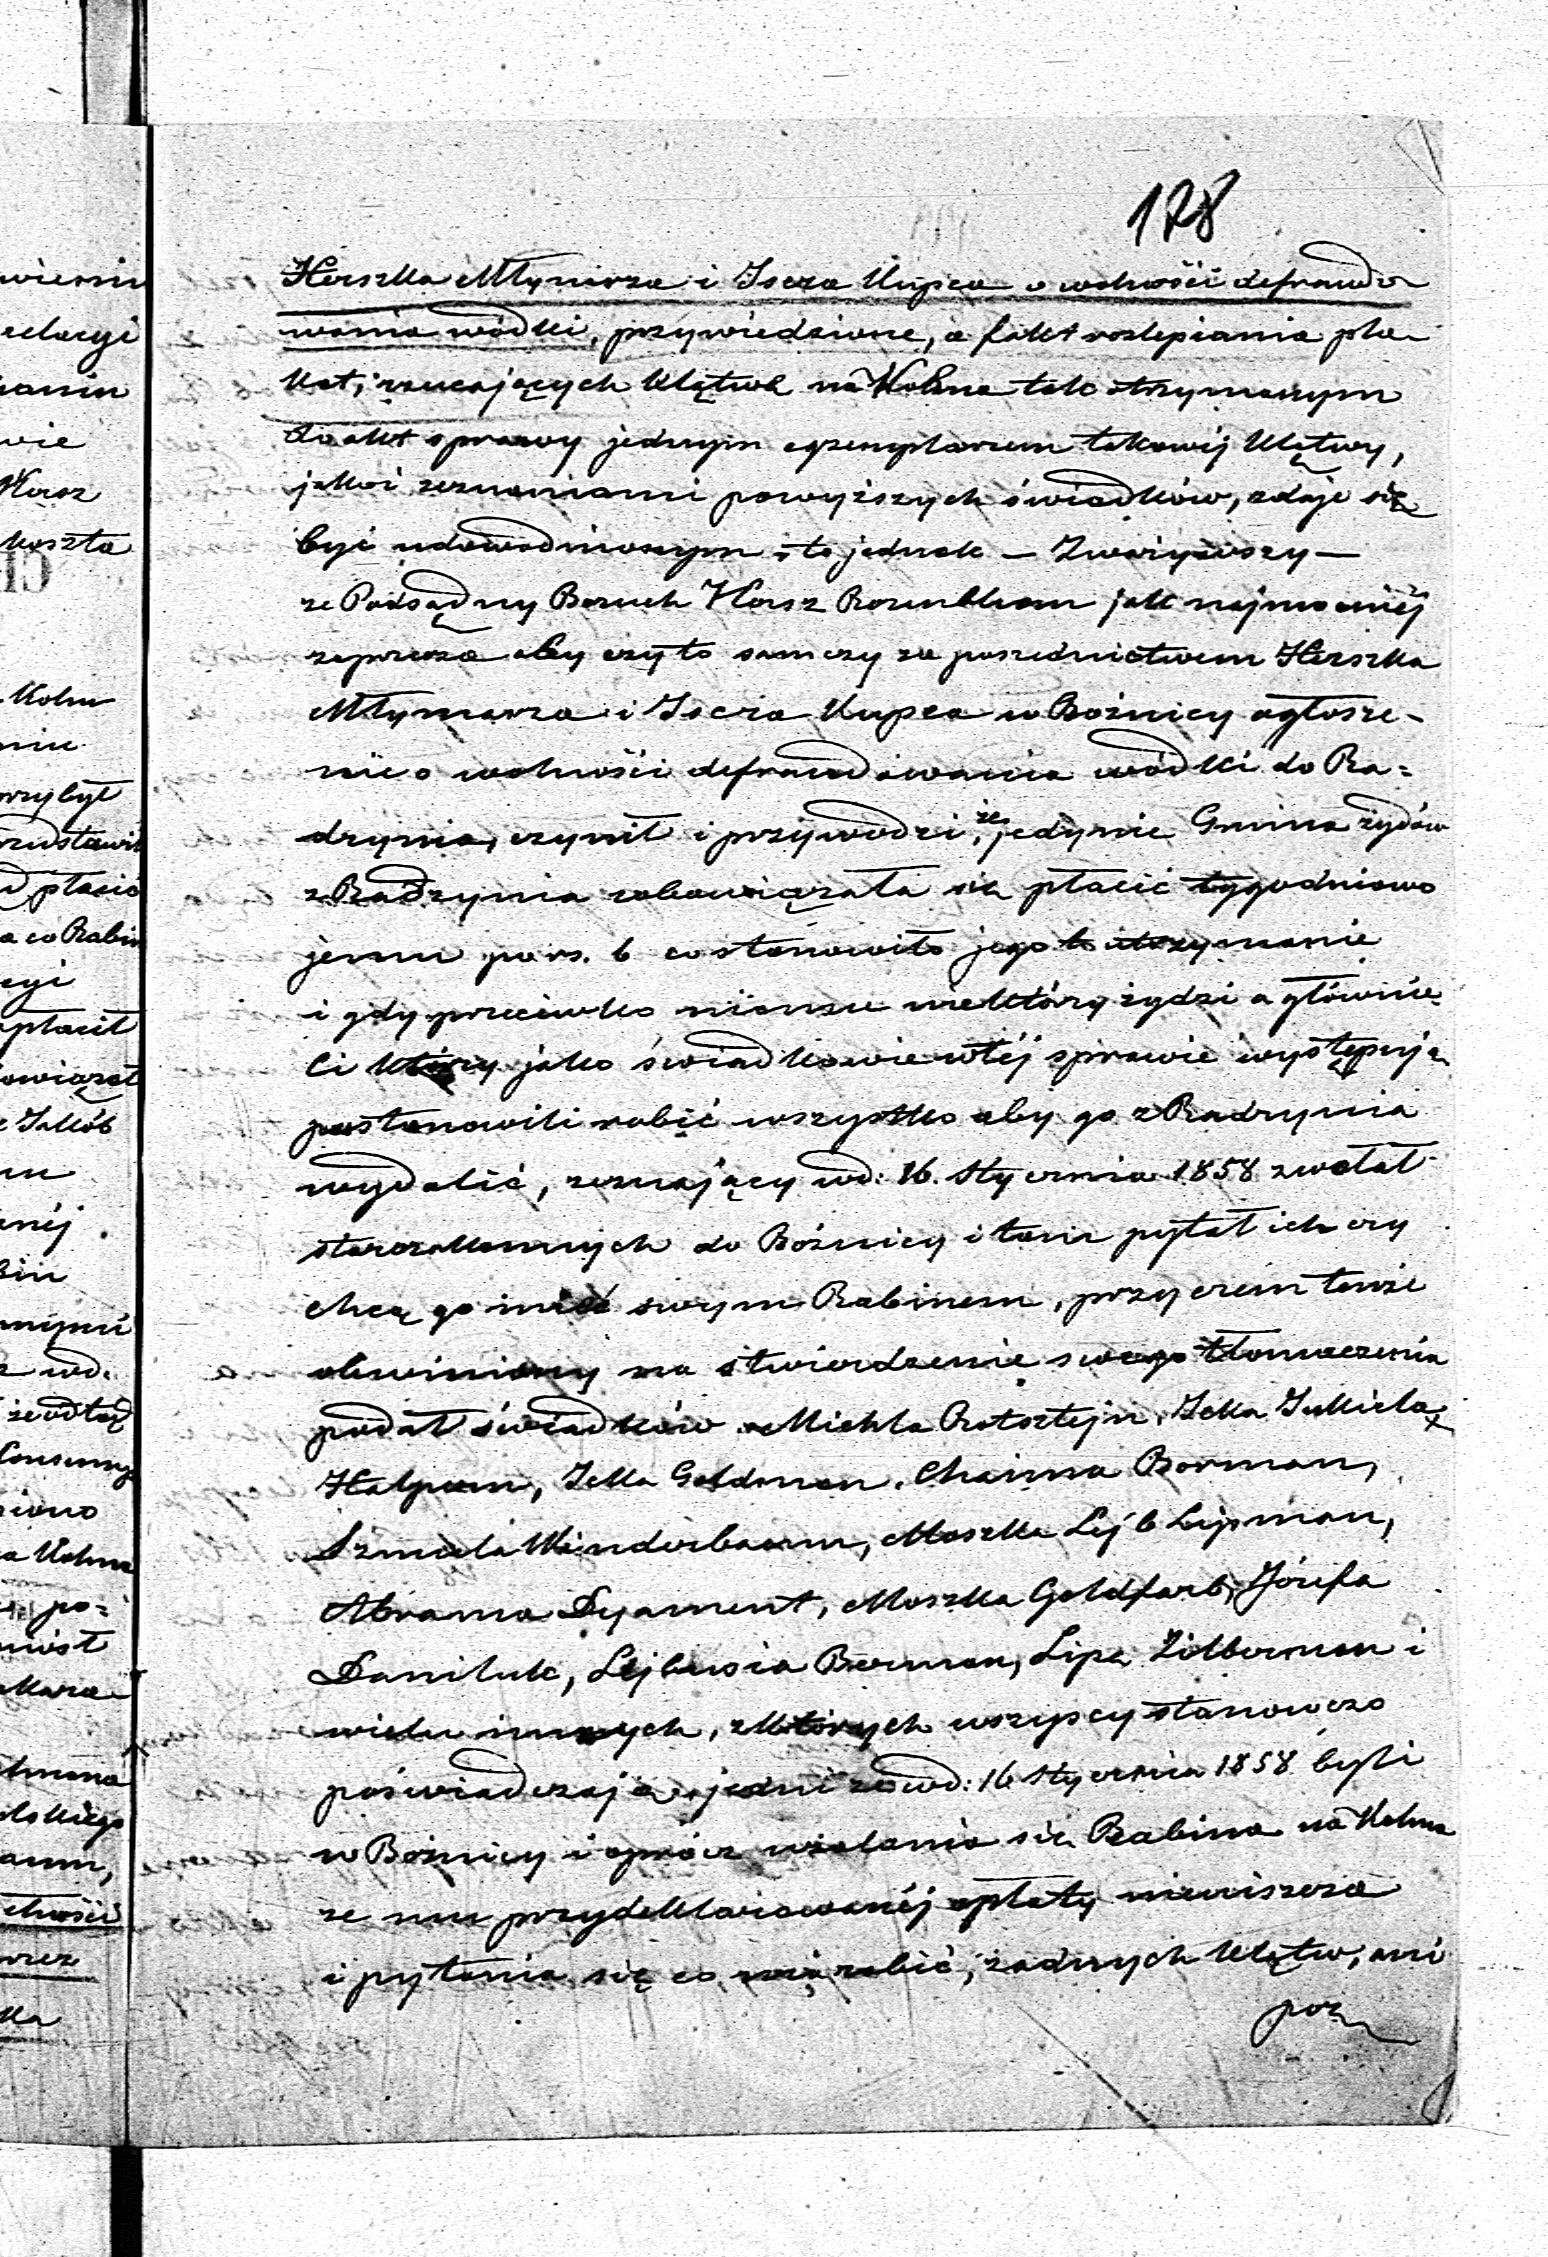 178
Herszka Młynarza i Icera Kupca o wolności defraudo
wania wódki, przywiedzione, a fakt rozlepiania pla-
kat, rzucających klątwę na Kohna tak otrzymanym
do akt sprawy jednym egzemplarzem takowej klątwy,
jako i zeznaniami powyższych świadków, zdaje się
być udowodnionym, to jednak — Zważywszy —
że Podsądny Boruch Hersz Rozenblum jak najmocniéj
zaprzecza aby czy to sam czy za pośrednictwem Herszka
Młynarza i Icera Kupca w Bożnicy ogłosze-
nie o wolności defraudowania wódki do Ra=
dzynia, czynił i przywodzi, że jedynie Gmina żydów
z Radzynia zobowiązała się płacić tygodniowo
jemu po rs. 6 co stanowiło jego utrzymanie
i gdy przeciwko niemu niektórzy żydzi a głównie
Ci którzy jako świadkowie w téj sprawie występują
postanowili robić wszystko aby go z Radzynia
wydalić, zeznający w d: 16. Stycznia 1858 zwołał
starozakonnych do Bóżnicy i tam pytał ich czy
chcą go mieć swym Rabinem, przyczem tenże
obwiniony na stwierdzenie swego tłomaczenia
podał świadków Michla Rotsztejn, Icka Jukiela
Halpern, Icka Goldman, Chaima Borman,
Szmula Winderbaum, Moszka Lejb Lipman,
Abrama Dyament, Moszka Goldfarb, Józefa
Daniluk, Lejbusia Berman, Lipę Zilberman i
wielu innych, z których wszyscy stanowczo
poświadczają, jedni że w d: 16 Stycznia 1858 byli
w Bożnicy i oprócz użalania się Rabina na Kohna
że mu przydeklarowanéj opłaty nieuiszcza
i pytania się co ma robić, żadnych klątw, ani
poz